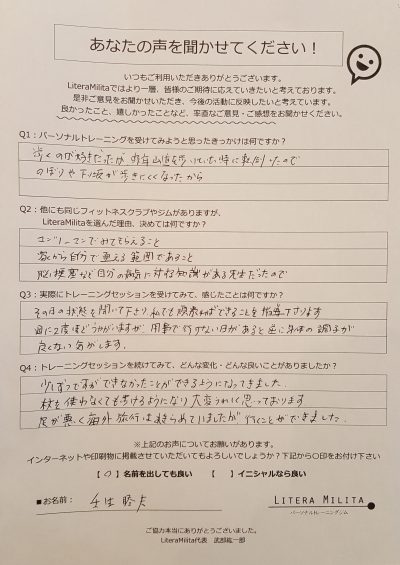 あなたの声を聞かせてください！
いつもご利用いただきありがとうございます。
LiteraMilitaではより一層、皆様のご期待に応えていきたいと考えております。
是非ご意見をお聞かせいただき、今後の活動に反映したいと考えています。
良かったこと、嬉しかったことなど、率直なご意見・ご感想をお聞かせください。
Q1：パーソナルトレーニングを受けてみようと思ったきっかけは何ですか？
歩くのが好きだったが お台山道を歩いていた時に転倒したので
のぼりや下り坂が歩きにくくなったから
Q2：他にも同じフィットネスクラブやジムがありますが、
LiteraMilitaを選んだ理由、決めては何ですか？
マンツーマンでみてもらえること
家から自分で通える範囲であること
脳梗塞など自分の病気に対する知識がある先生だったので
Q3：実際にトレーニングセッションを受けてみて、感じたことは何ですか？
その日の状態を聞いて下さり、私でも頑張ればできることを指導下さります
週に2度ほどうかがいますが、用事で行けない日があると逆に身体の調子が
良くない気がします。
Q4：トレーニングセッションを続けてみて、どんな変化・どんな良いことがありましたか？
少しずつですができなかったことができるようになってきました。
杖を使わなくても歩けるようになり大変うれしく思っております
足が悪く海外旅行はあきらめていましたが行くことができました。
※上記のお声についてお願いがあります。
インターネットや印刷物に掲載させていただいてもよろしいでしょうか？下記から〇印をお付け下さい
【 〇 】名前を出しても良い 【 】イニシャルなら良い
■お名前：
LITERA MILITA
パーソナルトレーニングジム
ご協力本当にありがとうございました。
LiteraMilita代表 武部純一郎